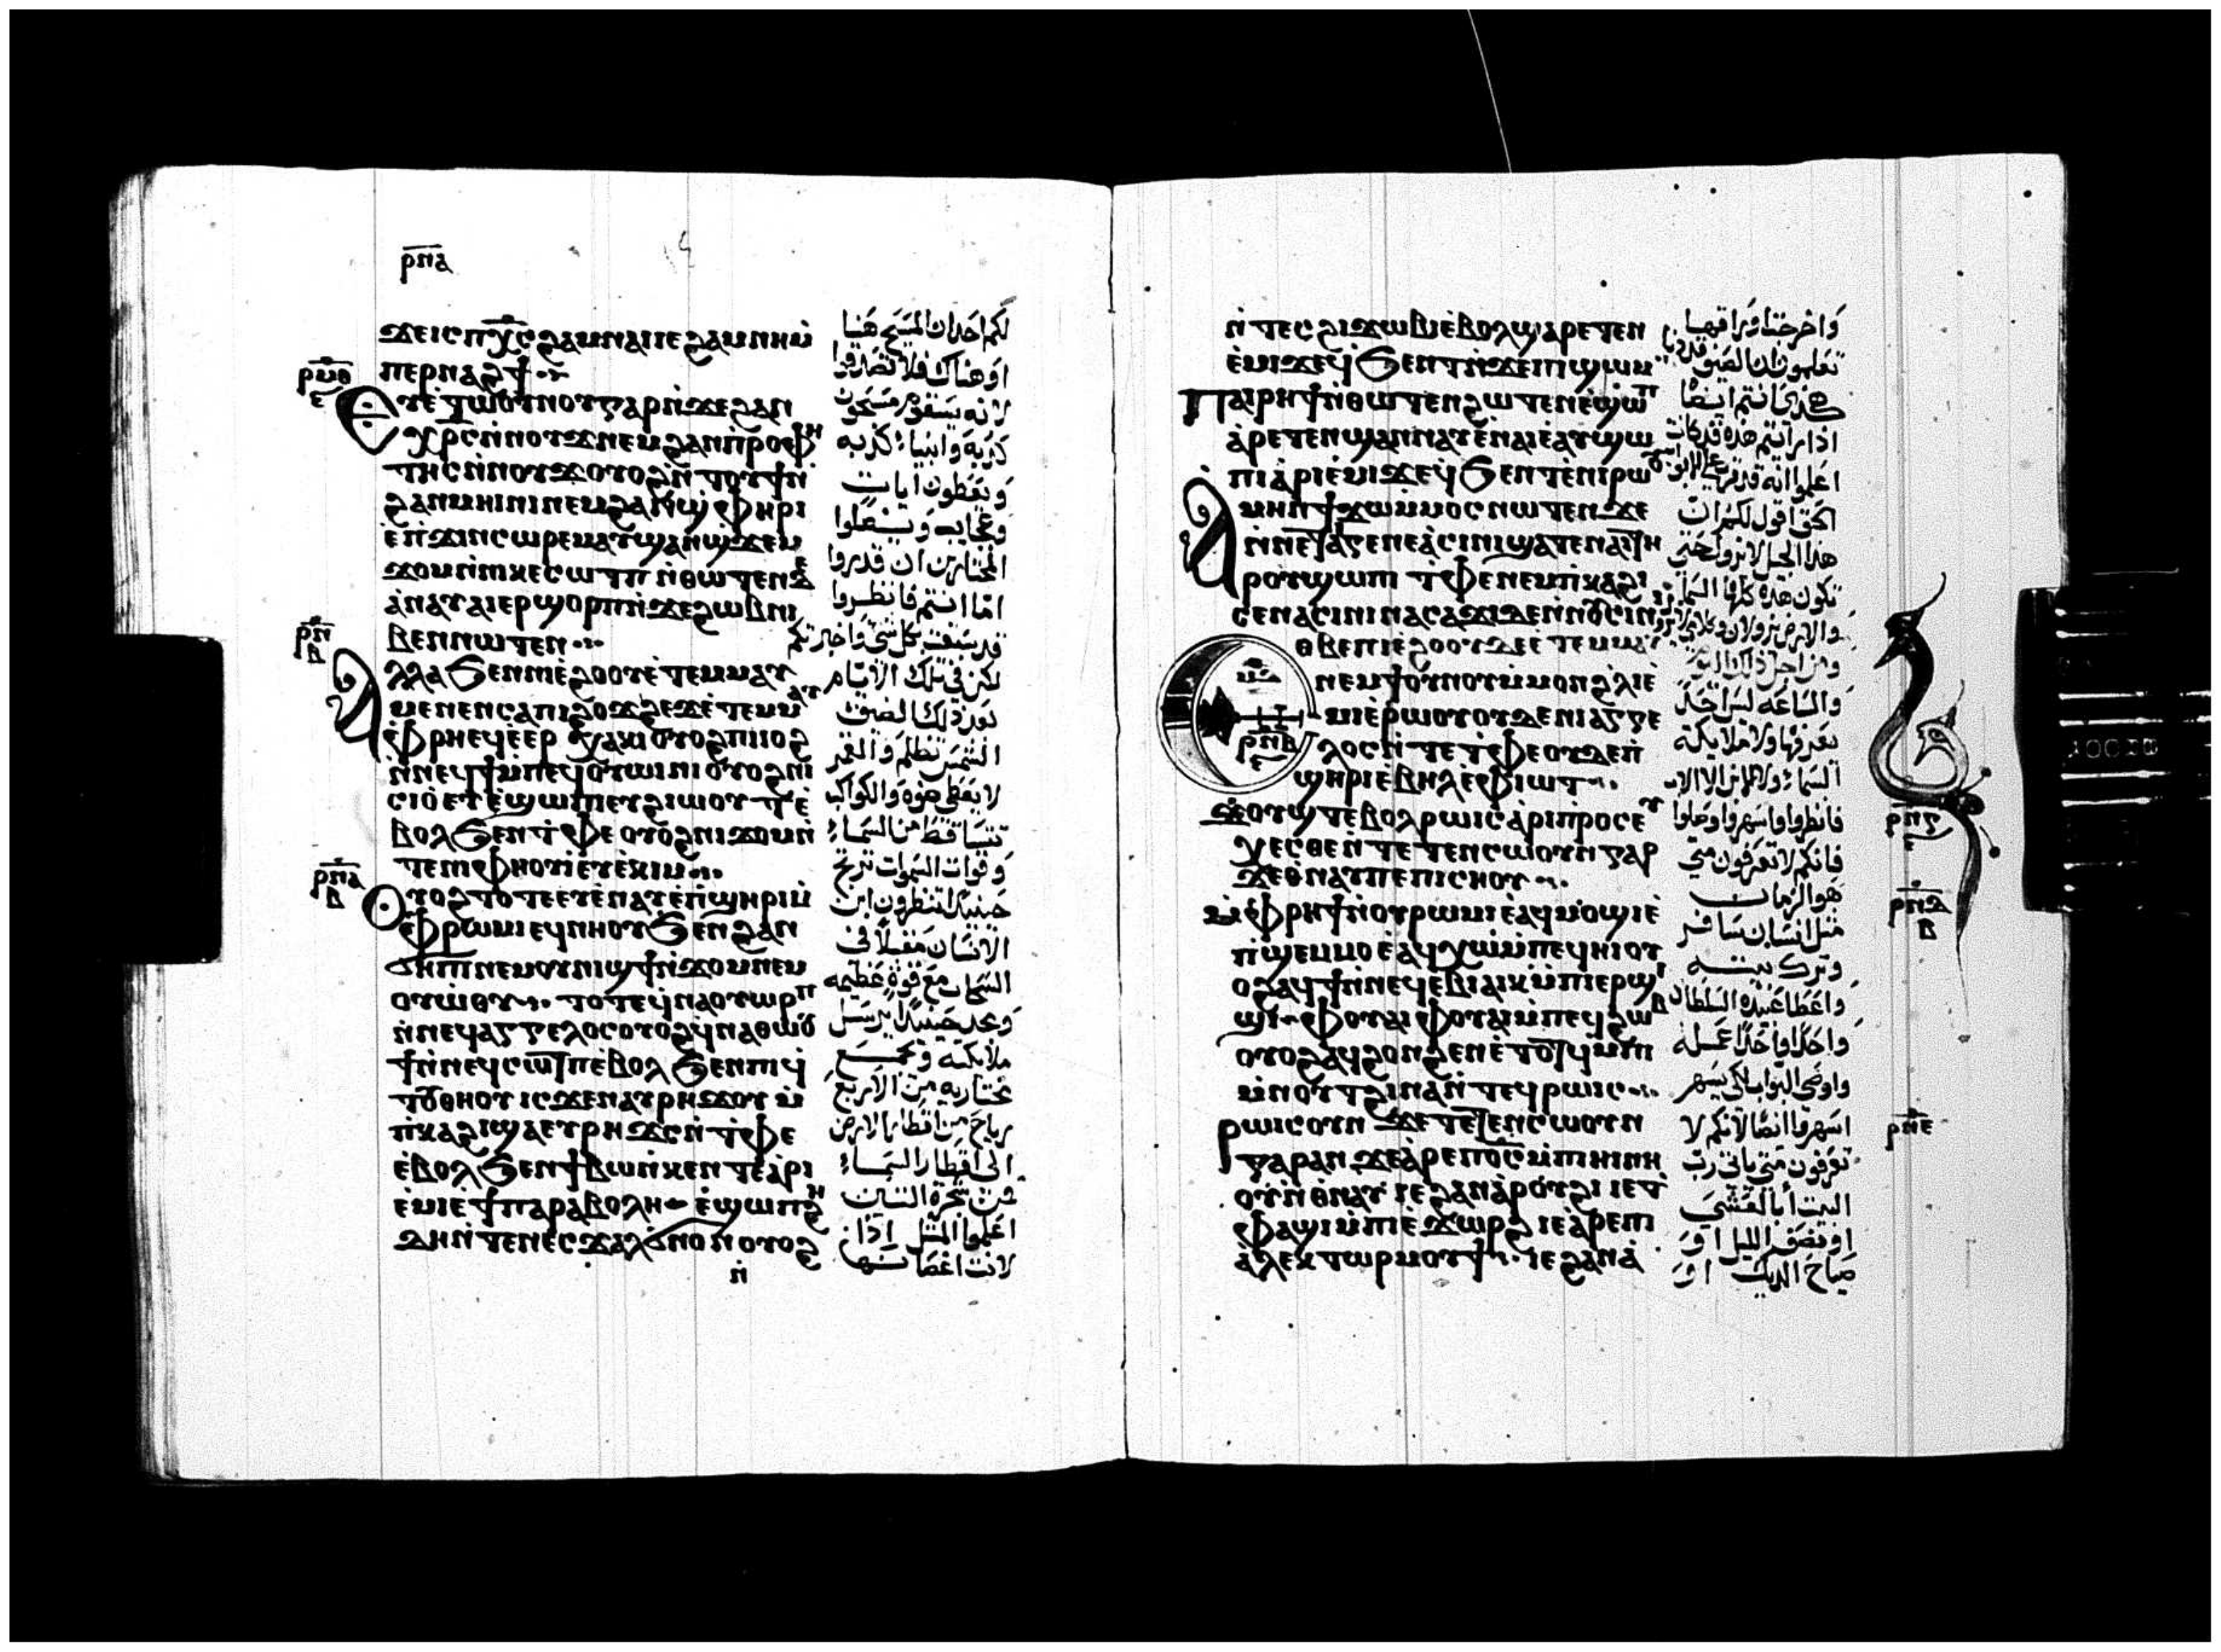 ⲣⲛⲁ
ϫⲉⲓⲥ ⲡⲭ̅ⲥ ϩⲁⲙⲛⲁⲓ ⲓⲉ ϩⲁⲙⲛⲏ ⲙ̇
ⲡⲉⲣⲛⲁϩϯ
ⲣⲙⲑ
ⲉ
ⲉⲩⲉ̀ⲧⲱⲟⲩⲛⲟⲩ ⲅⲁⲣ ⲛ̇ϫⲉ ϩⲁⲛ
ⲭⲣ̅ⲥ ⲛ̇ⲛⲟⲩϫ ⲛⲉⲙ ϩⲁⲛⲡ̇ⲣⲟⲫⲏ
ⲧⲏⲥ ⲛ̇ⲛⲟⲩϫ ⲟⲩⲟϩ ⲛ̇ⲧⲟⲩϯ ⲛ̇
ϩⲁⲛⲙⲏⲓⲛⲓ ⲛⲉⲙ ϩⲁⲛϣ̇ⲫⲏⲣⲓ
ⲉ̀ⲡ̇ϫⲓⲛⲥⲱⲣⲉⲙ ⲁⲩϣⲁⲛϣ̇ϫⲉⲙ
ϫⲟⲙ ⲛ̇ⲛⲓⲕⲉⲥⲱⲧⲡ ⲛ̇ⲑⲱⲧⲉⲛ ϫⲉ
ⲁ̀ⲛⲁⲩ ⲁⲓⲉⲣϣⲟⲣⲡ ⲛ̇ϫⲉ ϩⲱⲃ ⲛⲓ
ⲃⲉⲛ ⲛⲱⲧⲉⲛ
ⲣⲛ
ⲃ
ⲁⲗⲗⲁ ϧⲉⲛ ⲛⲓⲉ̀ϩⲟⲟⲩ ⲉ̀ⲧⲉⲙⲙⲁⲩ
ⲙⲉⲛⲉⲛⲥⲁ ⲡⲓϩⲟϫϩⲉϫ ⲉ̀ⲧⲉⲙⲙⲁⲩ
ⲫ̇ⲣⲏ ⲉϥⲉ̀ⲉⲣ ⲭⲁⲕⲓ ⲟⲩⲟϩ ⲡⲓⲓⲟϩ
ⲛ̇ⲛⲉϥϯ ⲙ̇ⲡⲉϥⲟⲩⲱⲓⲛⲓ ⲟⲩⲟϩ ⲛⲓ
ⲥⲓⲟⲩ ⲉⲩⲉ̀ϣⲱⲡⲓ ⲉⲩϩⲓⲱⲟⲩⲧ ⲉ̀
ⲃⲟⲗ ϧⲉⲛ ⲧ̇ⲫⲉ ⲟⲩⲟϩ ⲛⲓϫⲟⲙ ⲛ̇
ⲧⲉ ⲛⲓⲫⲏⲟⲩⲓ ⲉⲩⲉ̀ⲕⲓⲙ
ⲣⲛⲁ
ⲃ
ⲟⲩⲟϩ ⲧⲟⲧⲉ ⲉⲩⲉ̀ⲛⲁⲩ ⲉ̀ⲡ̇ϣⲏⲣⲓ ⲙ̇
ⲫ̇ⲣⲱⲙⲓ ⲉϥⲛⲏⲟⲩ ϧⲉⲛ ϩⲁⲛ
ϭⲏⲡⲓ ⲛⲉⲙ ⲟⲩⲛⲓϣϯ ⲛ̇ϫⲟⲙ ⲛⲉⲙ
ⲟⲩⲱ̇ⲟⲩ ⲧⲟⲧⲉ ϥ̇ⲛⲁⲟⲩⲱⲣⲡ
ⲛ̇ⲛⲉϥⲁⲅⲅⲉⲗⲟⲥ ⲟⲩⲟϩ ϥ̇ⲛⲁⲑⲱⲟⲩ
ϯ ⲛ̇ⲛⲉϥⲥⲱⲧⲡ ⲉⲃⲟⲗ ϧⲉⲛ ⲡⲓϥ
ⲧⲟⲩ ⲑⲏⲟⲩ ⲓⲥϫⲉⲛ ⲁⲩⲣⲏϫⲟⲩ ⲙ̇
ⲡ̇ⲕⲁϩⲓ ϣⲁ ⲉⲩⲣⲏϫⲥ ⲛ̇ⲧ̇ⲫⲉ
ⲉ̀ⲃⲟⲗ ϧⲉⲛ ϯⲃⲱ ⲛ̇ⲕⲉⲛⲧⲉ ⲁ̀ⲣⲓ
ⲉ̀ⲙⲓ ⲉ̀ϯⲡⲁⲣⲁⲃⲟⲗⲏ ⲉ̀ϣⲱⲡ ϩⲏ
ⲇⲏ ⲛ̇ⲧⲉ ⲛⲉⲥϫⲁⲗ ϭⲛⲟⲛ ⲟⲩⲟϩ
ⲛ̇
لكم احد ان المسيح هنا
او هناك فلا تصدقوا
لانه سيقوم مسحون
كذبه وانبياء كذبه
ويعطون ايات
وعجايب ويضلوا
المختارين ان قدروا
اما انتم فانظروا
قد سبقت بكل شي واخبرتكم
لكن في تلك الايام
بعد ذلك الضيق
الشمس تظلم والقمر
لا يعطي ضوه والكواكب
تتساقط من السماء
وقوات السموات ترتج
حينيذ لتنظرون ابن
الانسان مقبلا في
السحاب مع قوة عظيمه
ومجد حينيذا يرسل
ملايكته ويجمع
مختاريه من الاربع
رياح من اقطار الارض
الى اقطار السماء
من شجرة التين
اعلموا المثل اذا
لانت اغصانها
ⲛ̇ⲧⲉⲥϩⲓ ϫⲱⲃⲓ ⲉ̀ⲃⲟⲗ ϣⲁⲣⲉⲧⲉⲛ
ⲉ̀ⲙⲓ ϫⲉ ϥ̇ϧⲉⲛⲧ ⲛ̇ϫⲉ ⲡⲓϣⲱⲙ
ⲡⲁⲓⲣⲏϯ ⲛ̇ⲑⲱⲧⲉⲛ ϩⲱⲧⲉⲛ ⲉ̀ϣⲱⲡ
ⲁ̀ⲣⲉⲧⲉⲛϣⲁⲛⲛⲁⲩ ⲉ̀ⲛⲁⲓ ⲉ̀ⲁⲩϣⲱ
ⲡⲓ ⲁ̀ⲣⲓⲉ̀ⲙⲓ ϫⲉ ϥ̇ϧⲉⲛⲧ ⲉ̀ⲛⲓⲣⲱ
ⲁⲙⲏⲛ ϯϫⲱ ⲙ̇ⲙⲟⲥ ⲛⲱⲧⲉⲛ ϫⲉ
ⲛ̇ⲛⲉ ⲧⲁⲓⲅⲉⲛⲉⲁ̀ ⲥⲓⲛⲓ ϣⲁⲧⲉ ⲛⲁⲓ ⲧⲏ
ⲣⲟⲩ ϣⲱⲡⲓ ⲧ̇ⲫⲉ ⲛⲉⲙ ⲡ̇ⲕⲁϩⲓ
ⲥⲉⲛⲁⲥⲓⲛⲓ ⲛⲁⲥⲁϫⲓ ⲇⲉ ⲛ̇ⲛⲟⲩⲥⲓⲛⲓ
ⲉⲑⲃⲉ ⲡⲓⲉ̀ϩⲟⲟⲩ ⲇⲉ ⲉ̀ⲧⲉⲙⲙⲁⲩ
ⲛⲉⲙ ϯⲟⲩⲛⲟⲩ ⲙ̇ⲙⲟⲛ ϩ̇ⲗⲓ ⲉ̀
ⲙⲓ ⲉ̀ⲣⲱⲟⲩ ⲟⲩⲇⲉ ⲛⲓⲁⲅⲅⲉ
ⲗⲟⲥ ⲛ̇ⲧⲉ ⲧ̇ⲫⲉ ⲟⲩⲇⲉ ⲡ̇
ϣⲏⲣⲓ ⲉⲃⲏⲗ ⲉ̀ⲫ̇ⲓⲱⲧ
ⲙⲁ
ⲣⲛⲃ
ⲉ
ϫⲟⲩϣⲧ ⲉⲃⲟⲗ ⲣⲱⲓⲥ ⲁ̀ⲣⲓⲡ̇ⲣⲟⲥⲉⲩ
ⲭⲉⲥⲑⲉ ⲛ̇ⲧⲉⲧⲉⲛⲥⲱⲟⲩⲛ ⲅⲁⲣ
ϫⲉ ⲑ̇ⲛⲁⲩ ⲡⲉ ⲡⲓⲥⲏⲟⲩ
ⲙ̇ⲫ̇ⲣⲏϯ ⲛ̇ⲟⲩⲣⲱⲙⲓ ⲉ̀ⲁϥⲙⲟϣⲓ ⲉ̀
ⲡ̇ϣⲉⲙⲙⲟ ⲉ̀ⲁϥⲭⲱ ⲙ̇ⲡⲉϥⲏⲓ ⲟⲩ
ⲟϩ ⲁϥϯ ⲛ̇ⲛⲉϥⲉⲃⲓⲁⲓⲕ ⲙ̇ⲡⲓⲉⲣϣⲓ
ϣⲓ ⲫⲟⲩⲁⲓ ⲫⲟⲩⲁⲓ ⲙ̇ⲡⲉϥϩⲱⲃ
ⲟⲩⲟϩ ⲁϥϩⲟⲛϩⲉⲛ ⲉ̀ⲧⲟⲧϥ ⲙ̇ⲡⲓ
ⲙ̇ⲛⲟⲩⲧ ϩⲓⲛⲁ ⲛ̇ⲧⲉϥⲣⲱⲓⲥ
ⲣⲱⲓⲥ ⲟⲩⲛ ϫⲉ ⲧⲉⲧⲉⲛⲥⲱⲟⲩⲛ
ⲅⲁⲣ ⲁⲛ ϫⲉ ⲁ̀ⲣⲉ ⲡⲟ̅ⲥ ⲙ̇ⲡⲓⲏⲓ ⲛⲏ
ⲟⲩ ⲛ̇ⲑ̇ⲛⲁⲩ ⲓⲉ ϩⲁⲛⲁ̀ⲣⲟⲩϩⲓ ⲓⲉ ⲧ̇
ⲫⲁϣⲓ ⲙ̇ⲡⲓⲉ̀ϫⲱⲣϩ ⲓⲉ ⲁ̀ⲣⲉ ⲡⲓ
ⲁ̀ⲗⲉⲕⲧⲱⲣ ⲙⲟⲩϯ ⲓⲉ ϩⲁⲛⲁ̀
واخرجت اوراقها
تعلمون ان الصيف قد دنا
هكذا انتم ايضا
اذا رايتم هذه قد كانت
اعلموا انه قد قرب على الابواب
الحق اقول لكم ان
هذا الجيل لا يزول حتى
تكون هذه كلها السماء
والارض يزولان وكلامي لا يزول
ومن اجل ذلك اليوم
والساعه ليس احد
يعرفها ولا ملايكة
السماء ولا الابن الا الاب
فانظروا واسهروا وصلوا
فانكم لا تعرفون متى
هو الزمان
مثل انسان سافر
وترك بيته
واعطا عبيده السلطان
واحدا فواحدا عمله
واوصى البواب لكي يسهر
اسهروا ايضا لانكم لا
تعرفون متى ياتي رب
البيت أبالعشي
او نصف الليل او
صياح الديك او
ⲣⲛⲅ
ⲉ
ⲣⲛⲇ
ⲃ
ⲣⲛⲉ